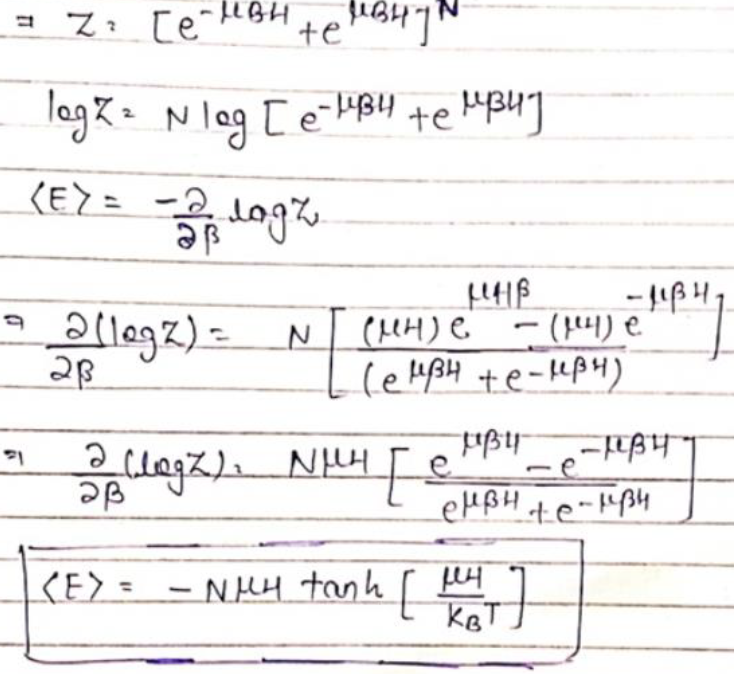 ⇒ Z = [e^{-μβH} + e^{μβH}]^N
log Z = N log [e^{-μβH} + e^{μβH}]
⟨E⟩ = -∂/∂β log Z
⇒ ∂(log Z)/∂β = N [((μH) e^{μHβ} - (μH) e^{-μβH}) / (e^{μβH} + e^{-μβH})]
⇒ ∂/∂β (log Z) = NμH [(e^{μβH} - e^{-μβH}) / (e^{μβH} + e^{-μβH})]
⟨E⟩ = - NμH tanh [μH / K_B T]